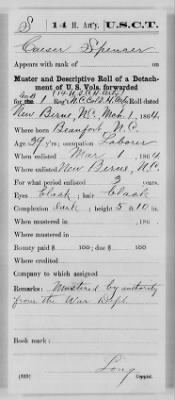 S 14 H. Art'y. U.S.C.T.
Caesar Spenser
Appears with rank of
Muster and Descriptive Roll of a Detach-
ment of U. S. Vols. forwarded
for the 1 Reg't N.C. Col'd H. Art'y Roll dated
New Berne, N.C. Mch. 1, 1864.
Where born Beaufort, N.C.
Age 39 y'rs; occupation Laborer
When enlisted Mar 1, 1864
Where enlisted New Berne, N.C.
For what period enlisted 3 years.
Eyes black; hair black
Complexion dark; height 5 ft. 10 in.
When mustered in , 186 .
Where mustered in
Bounty paid $ 100; due $ 100
Where credited
Company to which assigned
Remarks: Mustered by authority
from the War Dept.
Book mark:
Long
(339) Copyist.